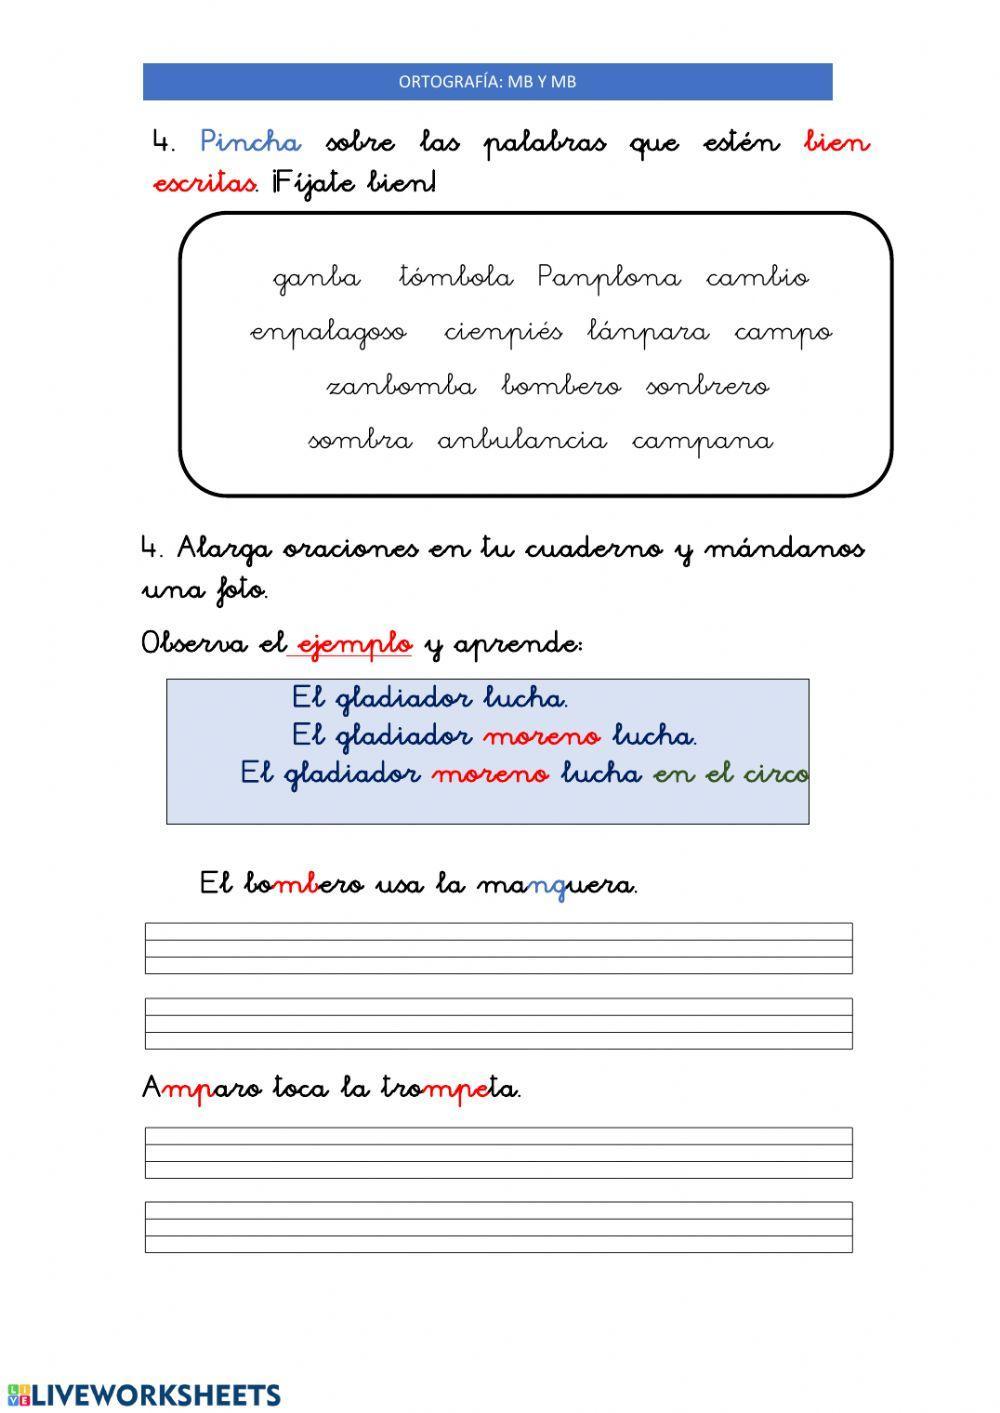 ORTOGRAFÍA: MB Y MB
4. Pincha sobre las palabras que estén bien
escritas. ¡Fíjate bien!
ganba tómbola Panplona cambio
enpalagoso cienpiés lánpara campo
zanbomba bombero sonbrero
sombra anbulancia campana
4. Alarga oraciones en tu cuaderno y mándanos
una foto.
Observa el ejemplo y aprende:
El gladiador lucha.
El gladiador moreno lucha.
El gladiador moreno lucha en el circo
El bombero usa la manguera.
Amparo toca la trompeta.
LIVE LIVEWORKSHEETS